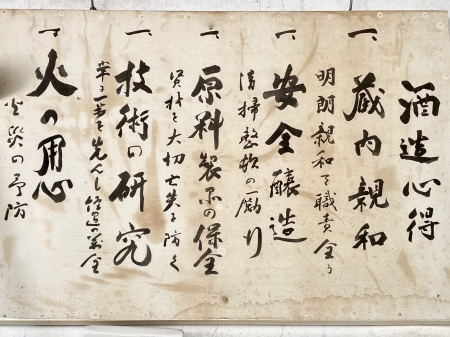 酒造心得
一、蔵内親和
明朗親和て職責全う
一、安全醸造
清掃整頓の励行
一、原料製品の保全
資材を大切亡失を防ぐ
一、技術の研究
一、火の用心
火災の予防